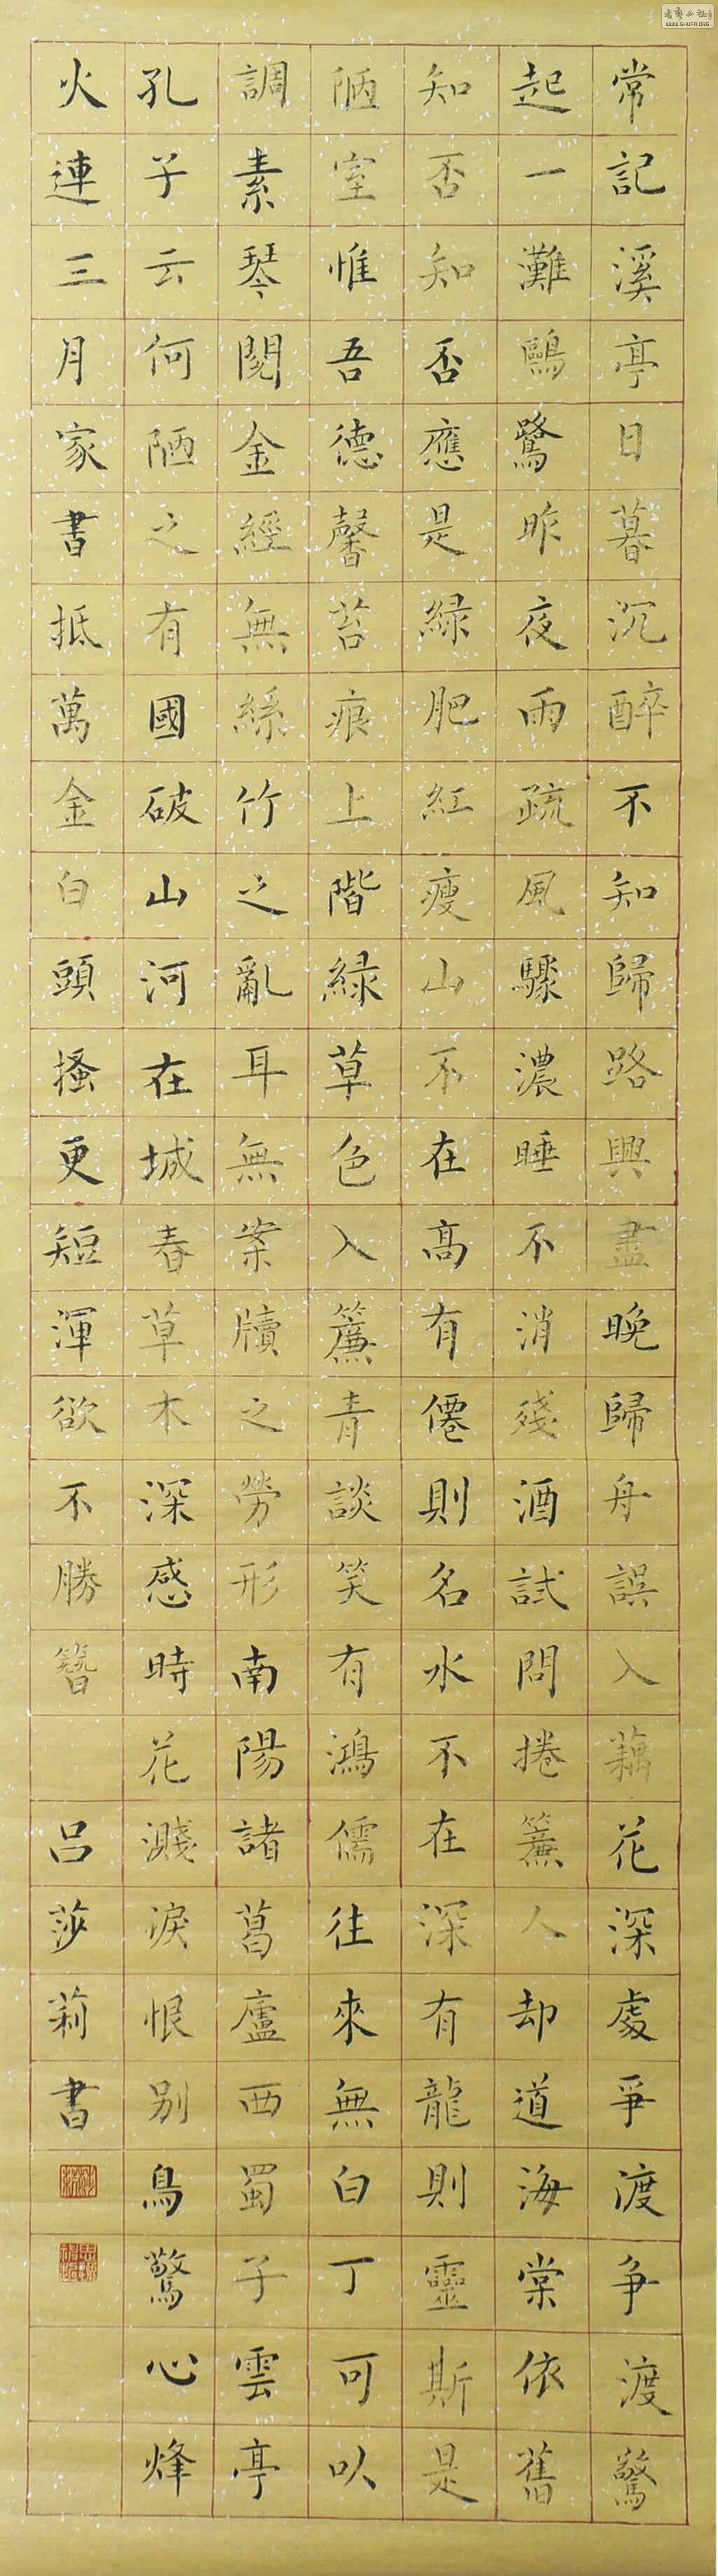 常記溪亭日暮沉醉不知歸路興盡晚歸舟誤入藕花深處爭渡争渡驚
起一灘鷗鷺昨夜雨疏風驟濃睡不消殘酒試問捲簾人却道海棠依舊
知否知否應是緑肥紅瘦山不在高有僊則名水不在深有龍則靈斯是
陋室惟吾德馨苔痕上階緑草色入簾青談笑有鴻儒往來無白丁可以
調素琴閱金經無絲竹之亂耳無案牘之勞形南陽諸葛廬西蜀子雲亭
孔子云何陋之有國破山河在城春草木深感時花濺淚恨别鳥驚心烽
火連三月家書抵萬金白頭搔更短渾欲不勝簪 呂莎莉書
WWW.SHUFA.ORG